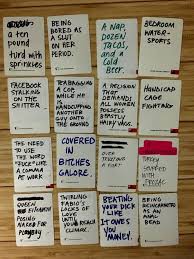 a ten
pound
turd with
sprinkles
BEING
BORED AS
A SLUT
ON HER
PERIOD.
A NAP,
DOZEN
TACOS,
and a
COLD
BEER.
BEDROOM
WATER-
SPORTS
FACEBOOK
STALKING
ON THE
SHITTER
TEABAGGING
A COP,
WHILE HE
IS
HANDCUFFING
ANOTHER
GUY ONTO
THE GROUND
A RELIGION
THAT
DEMANDS
ALL WOMEN
POSSESS
BEASTLY
HAIRY VAGS.
HANDICAP
CAGE
FIGHTING
THE NEED
TO USE
THE WORD
"FUCK" LIKE
A COMMA AT
WORK
COVERED
IN
BITCHES
GALORE.
OVER
A
FORT
STUFFED
WITH
QUEEN
ELIZABETH
POSING NAKED FOR
TWIRLING
FABIO'S
LOCKS OF
LOVE
UNTIL
YOU REACH
CLIMAX.
BEATING
YOUR DICK
LIKE
IT OWES
YOU MONEY.
BEING
REINCARNATED
AS AN
ANAL
BEAD